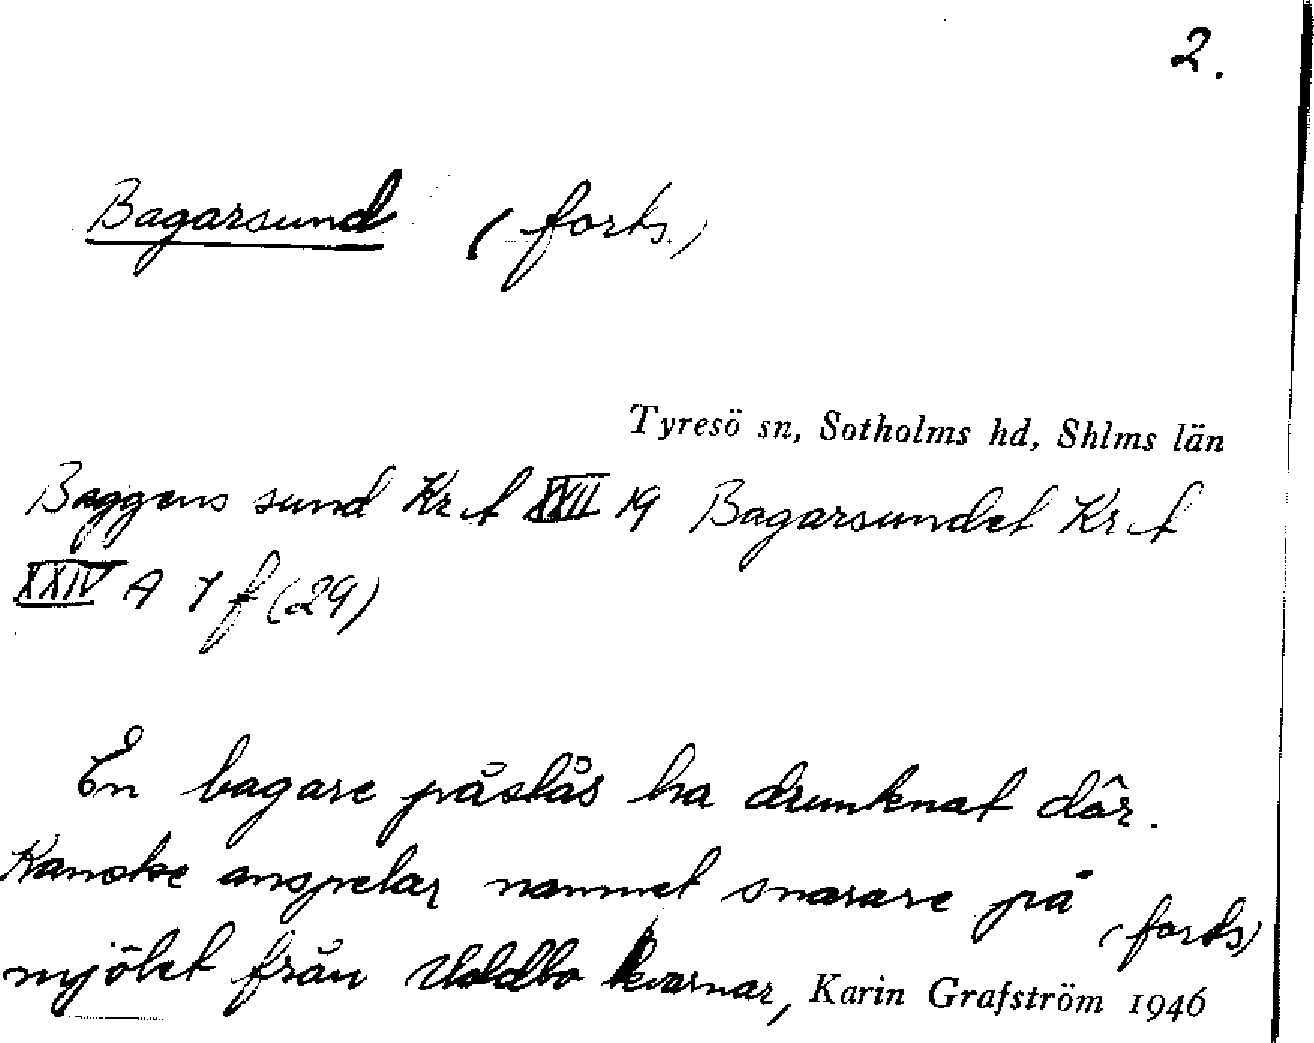 2.
Bagarsund (forts.)
Tyresö sn, Sotholms hd, Shlms län
Baggens sund Kr A XXII 19 Bagarsundet Kr A
XXIV A 7 f (29)
En bagare påstås ha drunknat där.
Kanske anspelar namnet snarare på
mjölet från kvarnar, (forts)
Karin Grafström 1946